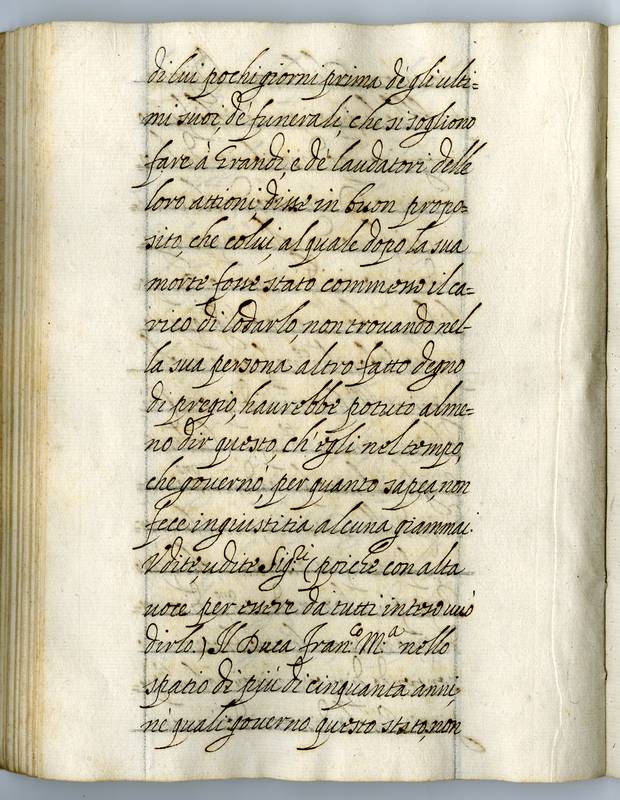 di lui pochi giorni prima de gli ulti=
mi suoi, de funerali, che si sogliono
fare à Grandi, e de laudatori delle
loro attioni disse in buon propo=
sito, che colui, al quale dopo la sua
morte fosse stato commesso il ca=
rico di lodarlo, non trouando nel-
la sua persona altro fatto degno
di pregio, haurebbe potuto alme=
no dir questo, ch'egli nel tempo,
che gouernò, per quanto sapea, non
fece ingiustitia alcuna giammai.
Vdite, udite Sig.ri (poiche con alta
uoce per essere da tutti inteso uuò
dirlo.) Il Duca Fran.co M.a nello
spatio di più di cinquanta anni,
nè quali gouerno questo stato, non